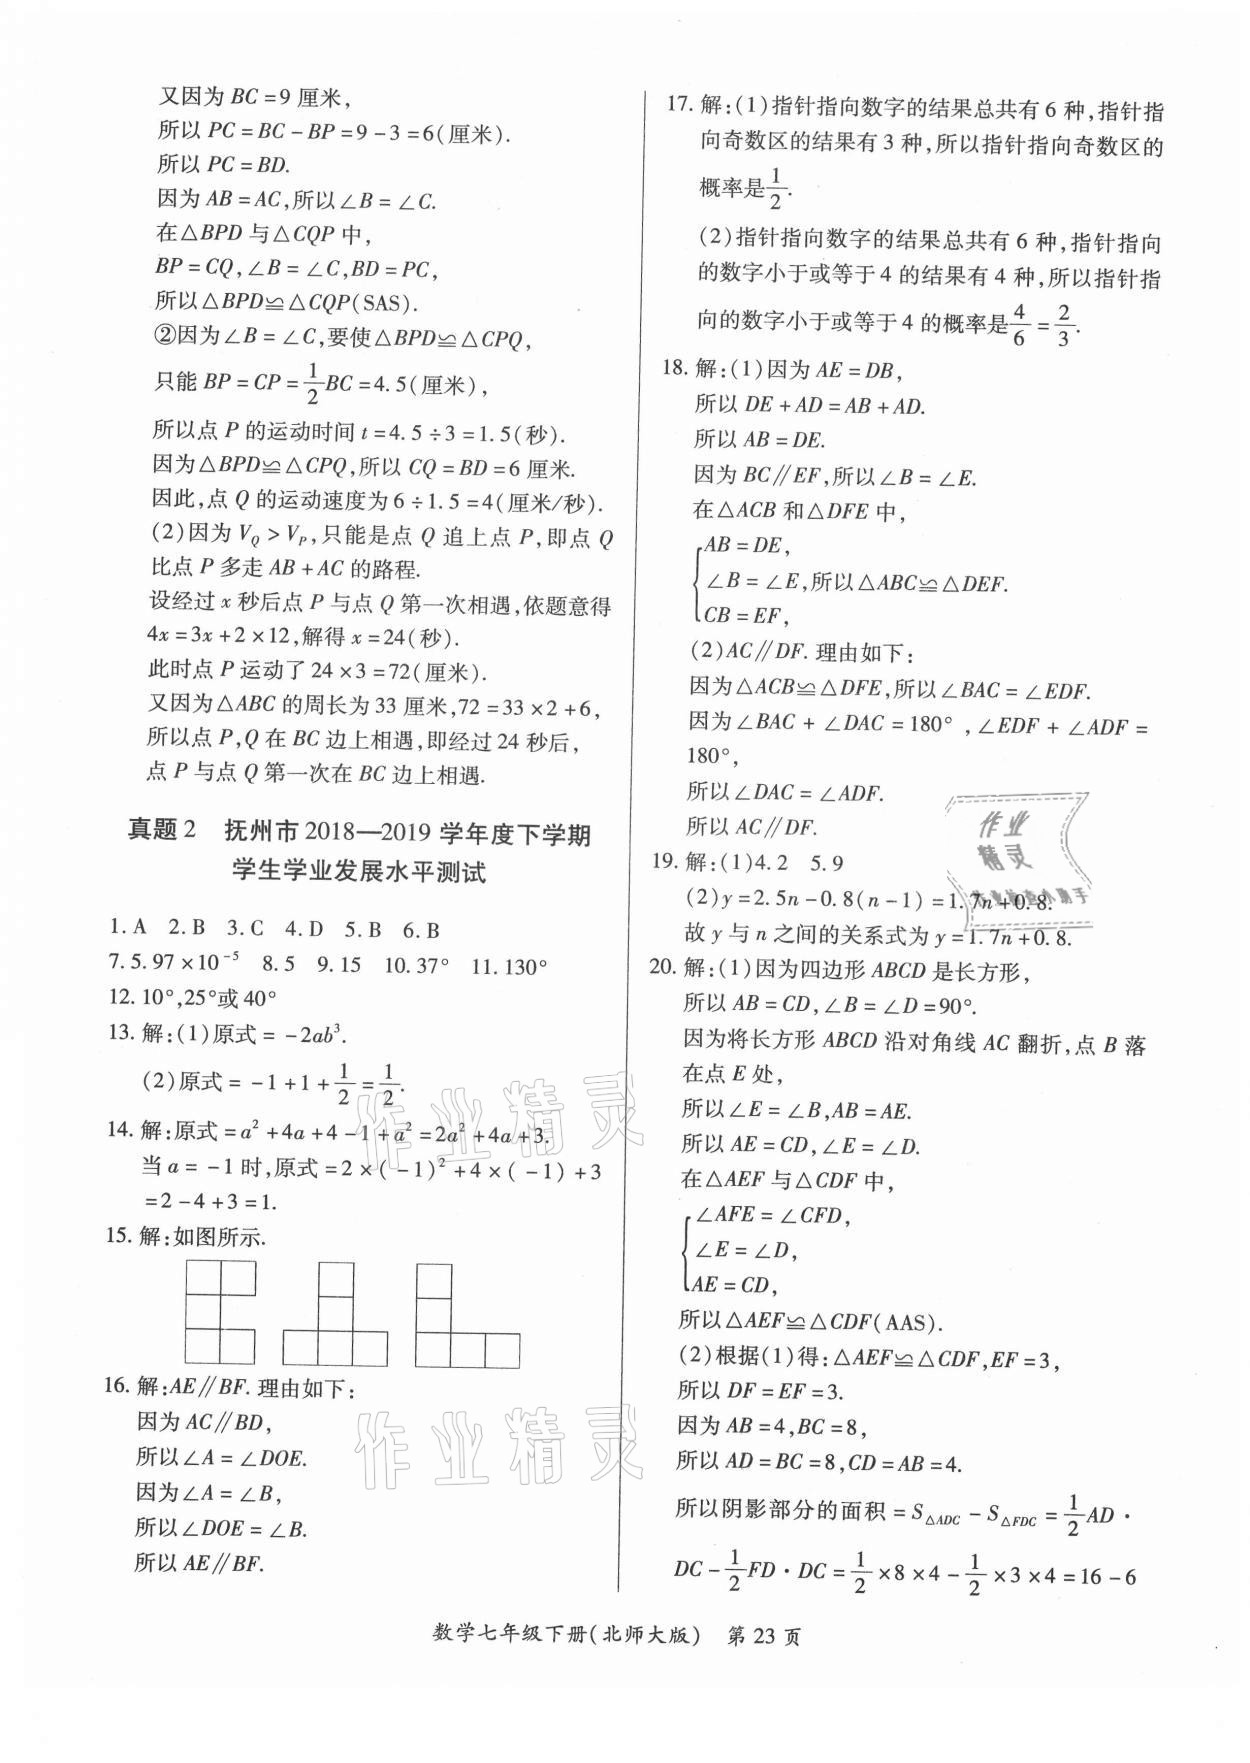 又因为 BC=9 厘米,
所以 PC=BC-BP=9-3=6(厘米).
所以 PC=BD.
因为 AB=AC,所以∠B=∠C.
在△BPD 与△CQP 中,
BP=CQ,∠B=∠C,BD=PC,
所以△BPD≌△CQP(SAS).
②因为∠B=∠C,要使△BPD≌△CPQ,
只能 BP=CP=1/2BC=4.5(厘米),
所以点 P 的运动时间 t=4.5÷3=1.5(秒).
因为△BPD≌△CPQ,所以 CQ=BD=6 厘米.
因此,点 Q 的运动速度为 6÷1.5=4(厘米/秒).
(2)因为 V_Q>V_P,只能是点 Q 追上点 P,即点 Q
比点 P 多走 AB+AC 的路程.
设经过 x 秒后点 P 与点 Q 第一次相遇,依题意得
4x=3x+2×12,解得 x=24(秒).
此时点 P 运动了 24×3=72(厘米).
又因为△ABC 的周长为 33 厘米,72=33×2+6,
所以点 P,Q 在 BC 边上相遇,即经过 24 秒后,
点 P 与点 Q 第一次在 BC 边上相遇.
真题 2 抚州市 2018—2019 学年度下学期
学生学业发展水平测试
1. A 2. B 3. C 4. D 5. B 6. B
7. 5.97×10⁻⁵ 8. 5 9. 15 10. 37° 11. 130°
12. 10°,25°或 40°
13. 解:(1)原式=-2ab³.
(2)原式=-1+1+1/2=1/2.
14. 解:原式=a²+4a+4-1+a²=2a²+4a+3.
当 a=-1 时,原式=2×(-1)²+4×(-1)+3
=2-4+3=1.
15. 解:如图所示.
16. 解:AE∥BF. 理由如下:
因为 AC∥BD,
所以∠A=∠DOE.
因为∠A=∠B,
所以∠DOE=∠B.
所以 AE∥BF.
17. 解:(1)指针指向数字的结果总共有 6 种,指针指
向奇数区的结果有 3 种,所以指针指向奇数区的
概率是1/2.
(2)指针指向数字的结果总共有 6 种,指针指向
的数字小于或等于 4 的结果有 4 种,所以指针指
向的数字小于或等于 4 的概率是4/6=2/3.
18. 解:(1)因为 AE=DB,
所以 DE+AD=AB+AD.
所以 AB=DE.
因为 BC∥EF,所以∠B=∠E.
在△ACB 和△DFE 中,
AB=DE,
∠B=∠E,所以△ABC≌△DEF.
CB=EF,
(2)AC∥DF. 理由如下:
因为△ACB≌△DFE,所以∠BAC=∠EDF.
因为∠BAC+∠DAC=180°,∠EDF+∠ADF=
180°,
所以∠DAC=∠ADF.
所以 AC∥DF.
19. 解:(1)4.2 5.9
(2)y=2.5n-0.8(n-1)=1.7n+0.8.
故 y 与 n 之间的关系式为 y=1.7n+0.8.
20. 解:(1)因为四边形 ABCD 是长方形,
所以 AB=CD,∠B=∠D=90°.
因为将长方形 ABCD 沿对角线 AC 翻折,点 B 落
在点 E 处,
所以∠E=∠B,AB=AE.
所以 AE=CD,∠E=∠D.
在△AEF 与△CDF 中,
∠AFE=∠CFD,
∠E=∠D,
AE=CD,
所以△AEF≌△CDF(AAS).
(2)根据(1)得:△AEF≌△CDF,EF=3,
所以 DF=EF=3.
因为 AB=4,BC=8,
所以 AD=BC=8,CD=AB=4.
所以阴影部分的面积=S△ADC-S△FDC=1/2AD·
DC-1/2FD·DC=1/2×8×4-1/2×3×4=16-6
数学七年级下册(北师大版) 第 23 页
作业精灵
作业精灵
作业
精灵
作业检查小助手